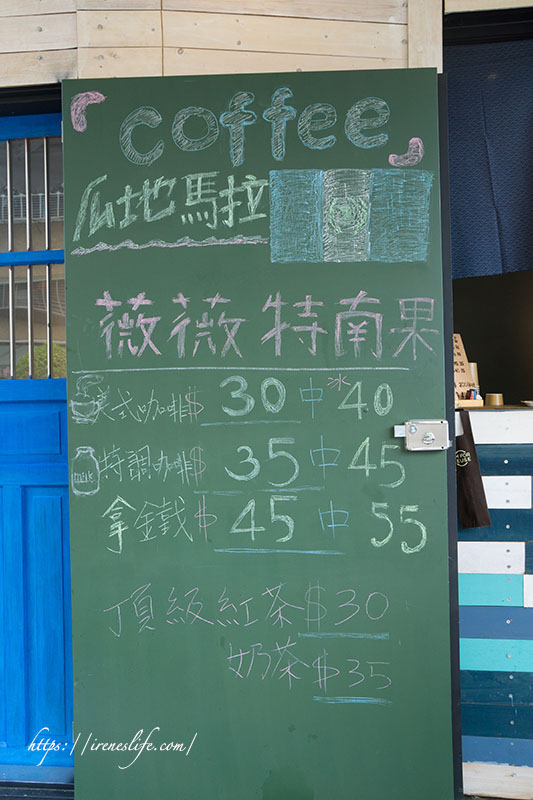 「coffee」
瓜地馬拉
薇薇特南果
美式咖啡$ 30 中 冰40
milk
特調咖啡$ 35 中 45
拿鐵$ 45 中 55
頂級紅茶$30
奶茶$35
https://ireneslife.com/